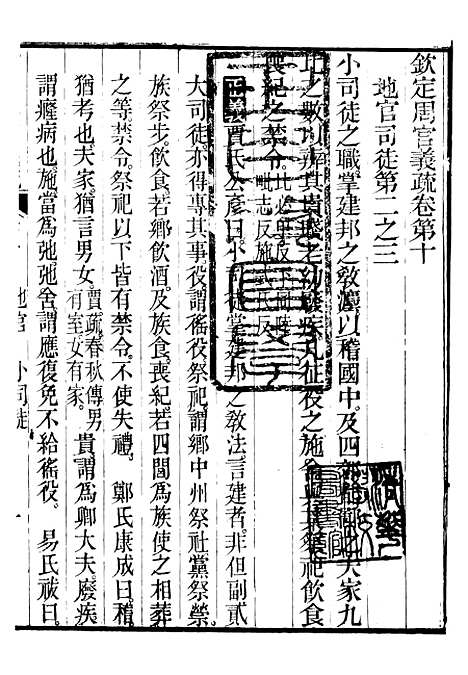 欽定周官義疏卷第十
地官司徒第二之三
小司徒之職掌建邦之敎灋以稽國中及四夫家九
之數以辨其貴老幼廢疾凡征役之施祭祀飲食
喪紀之禁令
正義賈氏公彥曰小司徒掌建邦之敎法言建者非但副貳
大司徒亦得專其事役謂徭役祭祀謂鄉中州祭社黨祭禜
族祭步飲食若鄉飲酒及族食喪紀若四閭為族使之相葬
之等禁令祭祀以下皆有禁令不使失禮 鄭氏康成曰稽
猶考也夫家猶言男女賈疏春秋傳男有室女有家貴謂為卿大夫廢疾
謂癃病也施當為弛弛舍謂應復免不給徭役 易氏祓曰
地官 小司徒 一